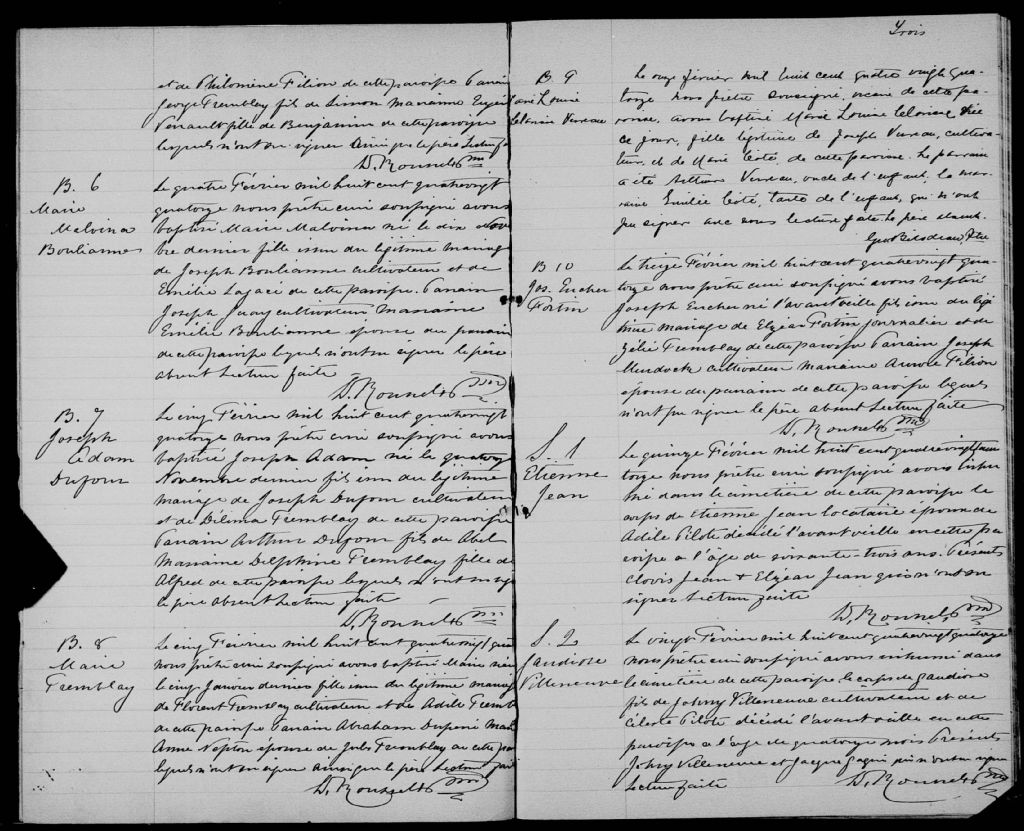 et de Philomène Filion de cette paroisse Parrain
George Tremblay fils de Simon marraine
Perrault fille de Benjamin de cette paroisse
lesquels n'ont su signer ainsi que le père Lecture
D. Roussel ptre
B. 6
Marie
Malvina
Boulianne
Le quatre Février mil huit cent quatrevingt
quatorze nous prêtre curé soussigné avons
baptisé Marie Malvina né le dix
bre dernier fille issu du légitime mariage
de Joseph Boulianne cultivateur et de
Emélie Lagacé de cette paroisse. Parrain
Joseph cultivateur marraine
Emélie Boulianne épouse du parrain
de cette paroisse lesquels n'ont su signer le père
absent Lecture faite
D. Roussel ptre
B. 7
Joseph
Adam
Dufour
Le cinq Février mil huit cent quatrevingt
quatorze nous prêtre curé soussigné avons
baptisé Joseph Adam né le quatorze
Novembre dernier fils issu du légitime
mariage de Joseph Dufour cultivateur
et de Délima Tremblay de cette paroisse
Parrain Arthur Dufour fils de Abel
Marraine Delphine Tremblay fille de
Alfred de cette paroisse lesquels n'ont su
le père absent Lecture faite
D. Roussel ptre
B. 8
Marie
Tremblay
Le cinq Février mil huit cent quatrevingt
nous prêtre curé soussigné avons baptisé Marie née
le cinq Janvier dernier fille issu du légitime mariage
de Florent Tremblay cultivateur et de Adèle Tremb
de cette paroisse Parrain Abraham
Anne épouse de Jules Tremblay de cette
lesquels n'ont su signer ainsi que le père Lecture
D. Roussel ptre
Trois
B. 9
Marie Louise
Verreau
Le onze février mil huit cent quatre vingt qua-
torze nous prêtre soussigné, vicaire de cette pa-
roisse, avons baptisé Marie Louise née
ce jour, fille légitime de Joseph Verreau, cultiva-
teur, et de Marie Coté, de cette paroisse. Le parrain
a été Arthur Verreau, oncle de l'enfant, la mar-
raine Emélie Coté, tante de l'enfant, qui n'ont
pu signer avec nous lecture faite. Le père absent.
Geo Bilodeau, Ptre
B 10
Jos. Eucher
Fortin
Le treize Février mil huit cent quatrevingt qua-
torze nous prêtre curé soussigné avons baptisé
Joseph Eucher né l'avant veille fils issu du légi
time mariage de Elzéar Fortin journalier et de
Zélie Tremblay de cette paroisse Parrain Joseph
Murdock cultivateur marraine Aurore Filion
épouse du parrain de cette paroisse lesquels
n'ont pu signer le père absent Lecture faite
D. Roussel ptre
S. 1
Etienne
Jean
Le quinze Février mil huit cent quatrevingt qua
torze nous prêtre curé soussigné avons inhu
mé dans le cimetière de cette paroisse le
corps de Etienne Jean locataire époux de
Adèle Pilote décédé l'avant veille en cette pa
roisse a l'âge de soixante-trois ans. Présents
Clovis Jean & Elzéar Jean qui n'ont su
signer Lecture faite
D. Roussel ptre
S. 2
Gaudiose
Villeneuve
Le vingt Février mil huit cent quatrevingt quatorze
nous prêtre curé soussigné avons inhumé dans
le cimetière de cette paroisse le corps de Gaudiose
fils de Johny Villeneuve cultivateur et de
Céleste Pilote décédé l'avant veille en cette
paroisse a l'âge de quatorze mois Présents
Johny Villeneuve et Jacques Gagné qui n'ont su signer
Lecture faite
D. Roussel ptre